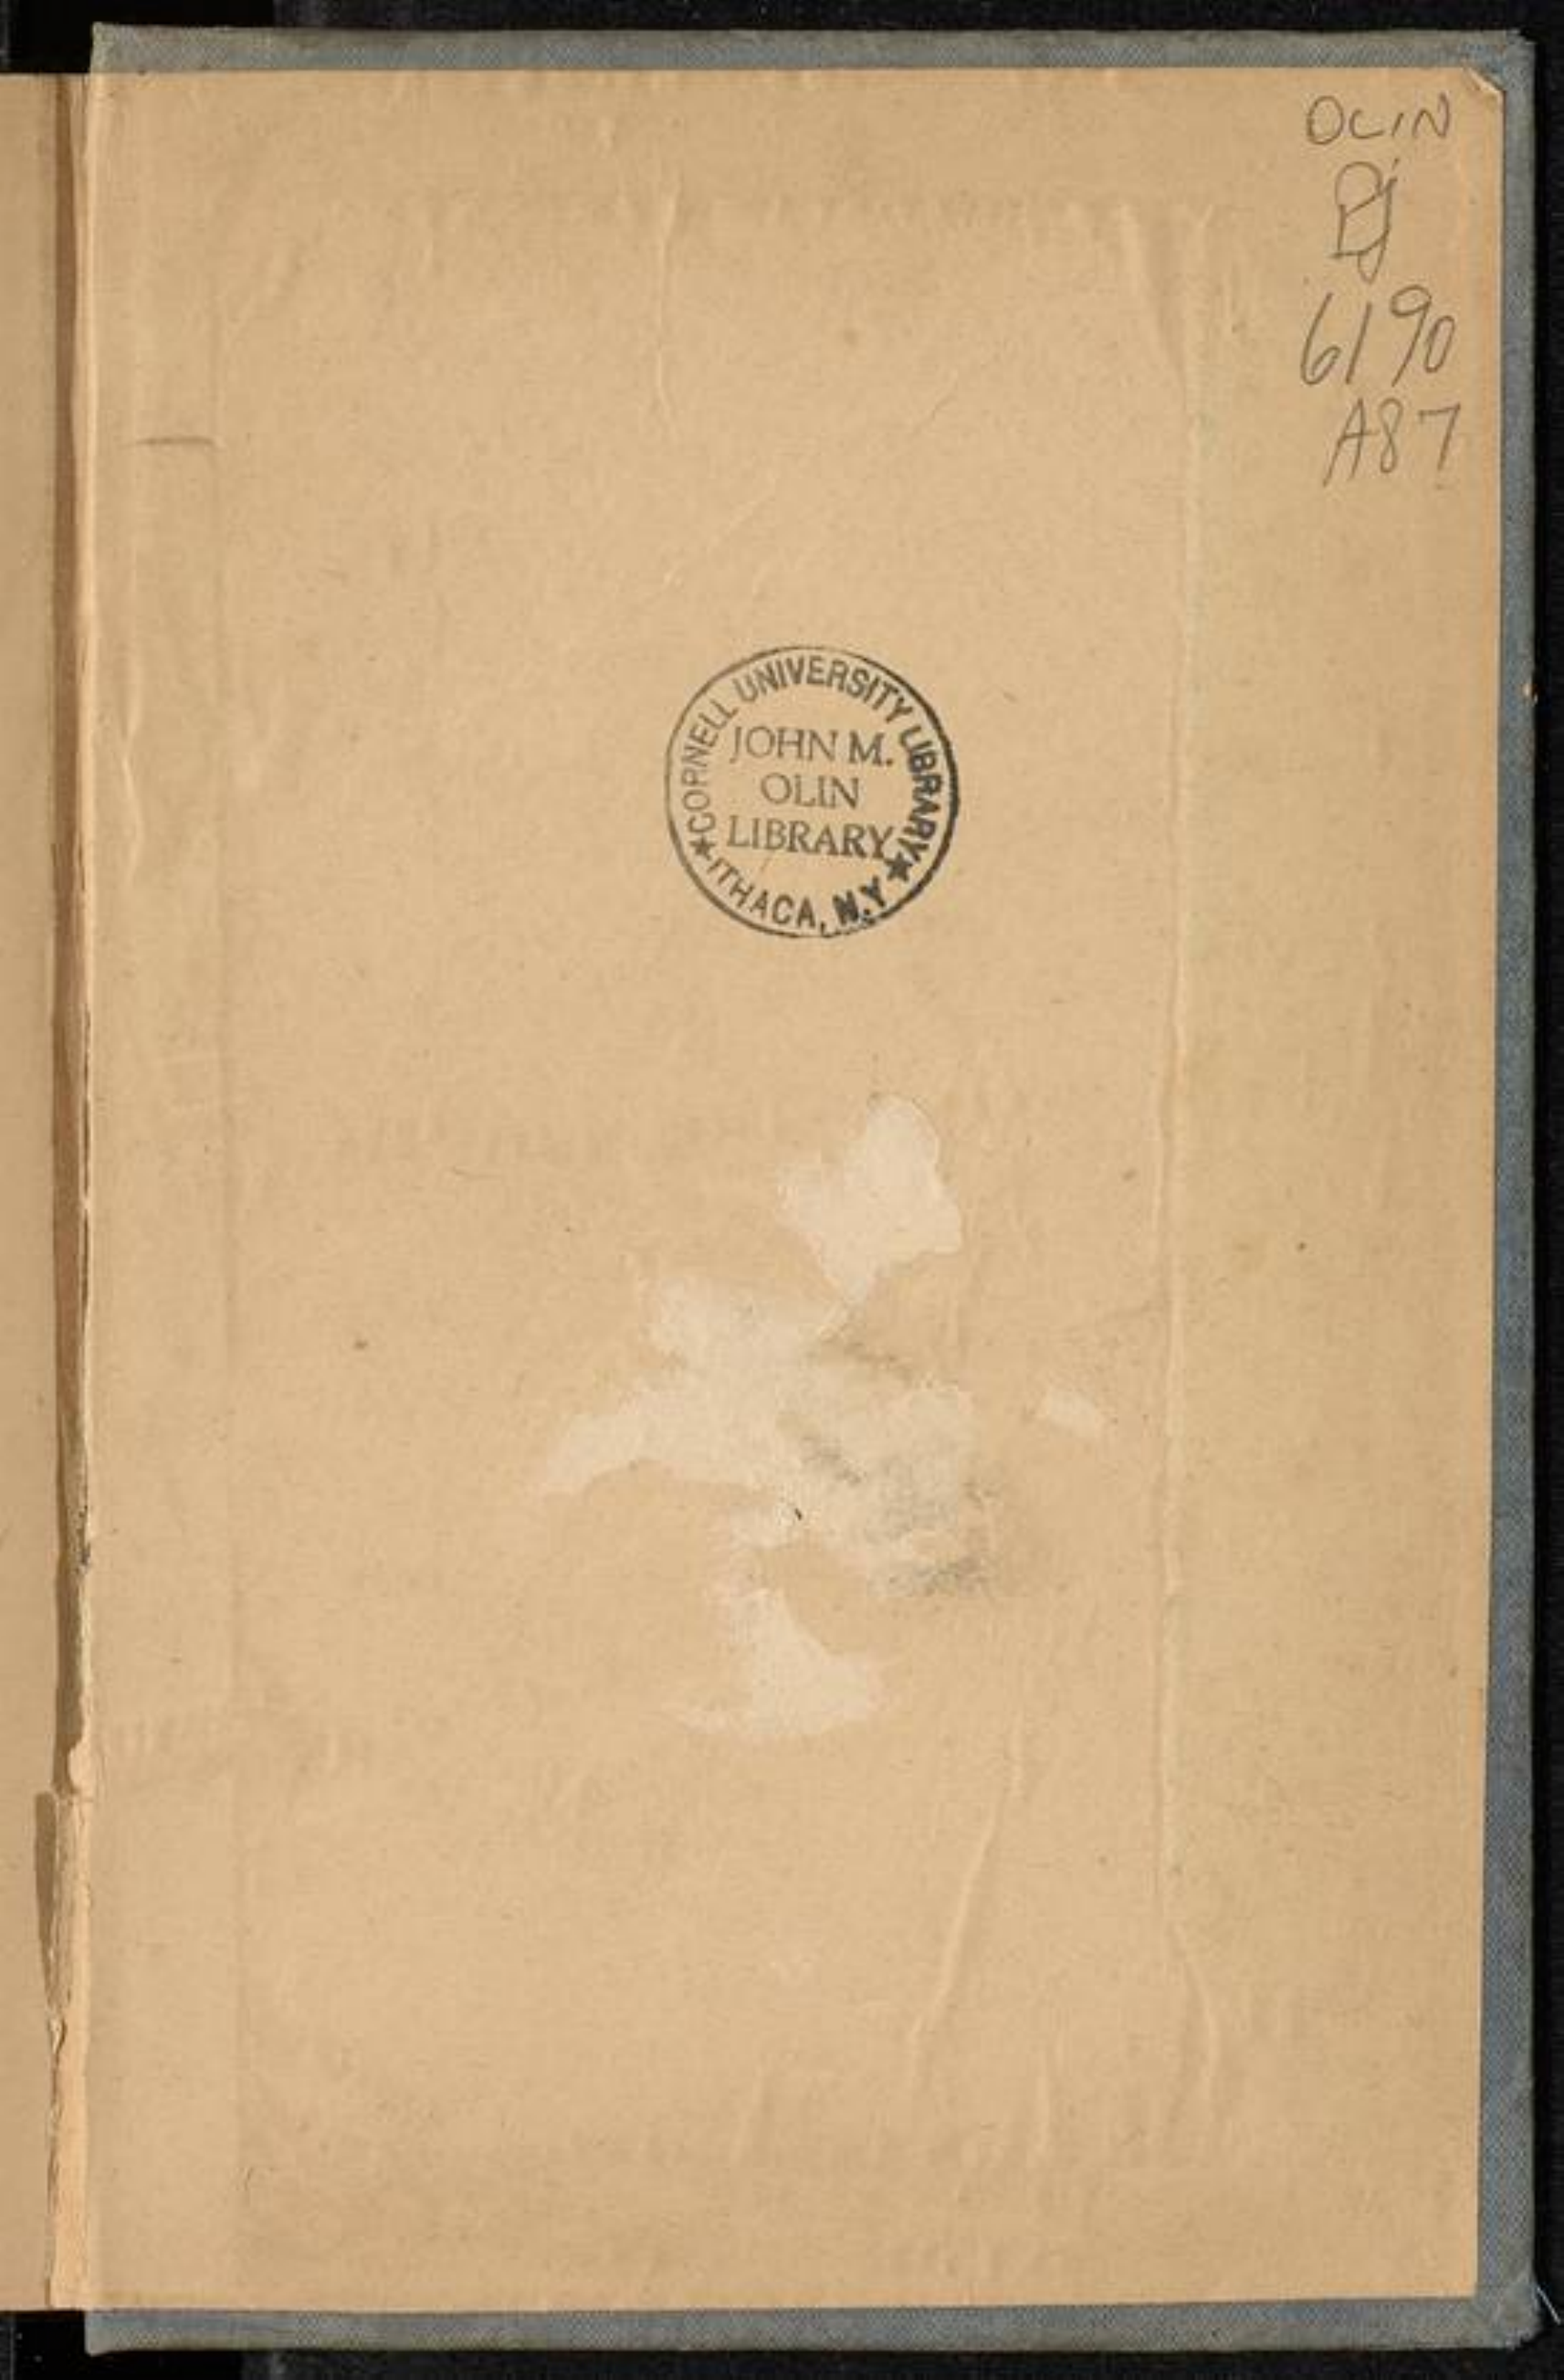 OLIN
PJ
6190
A87
★CORNELL UNIVERSITY LIBRARY★
JOHN M.
OLIN
LIBRARY
ITHACA, N.Y